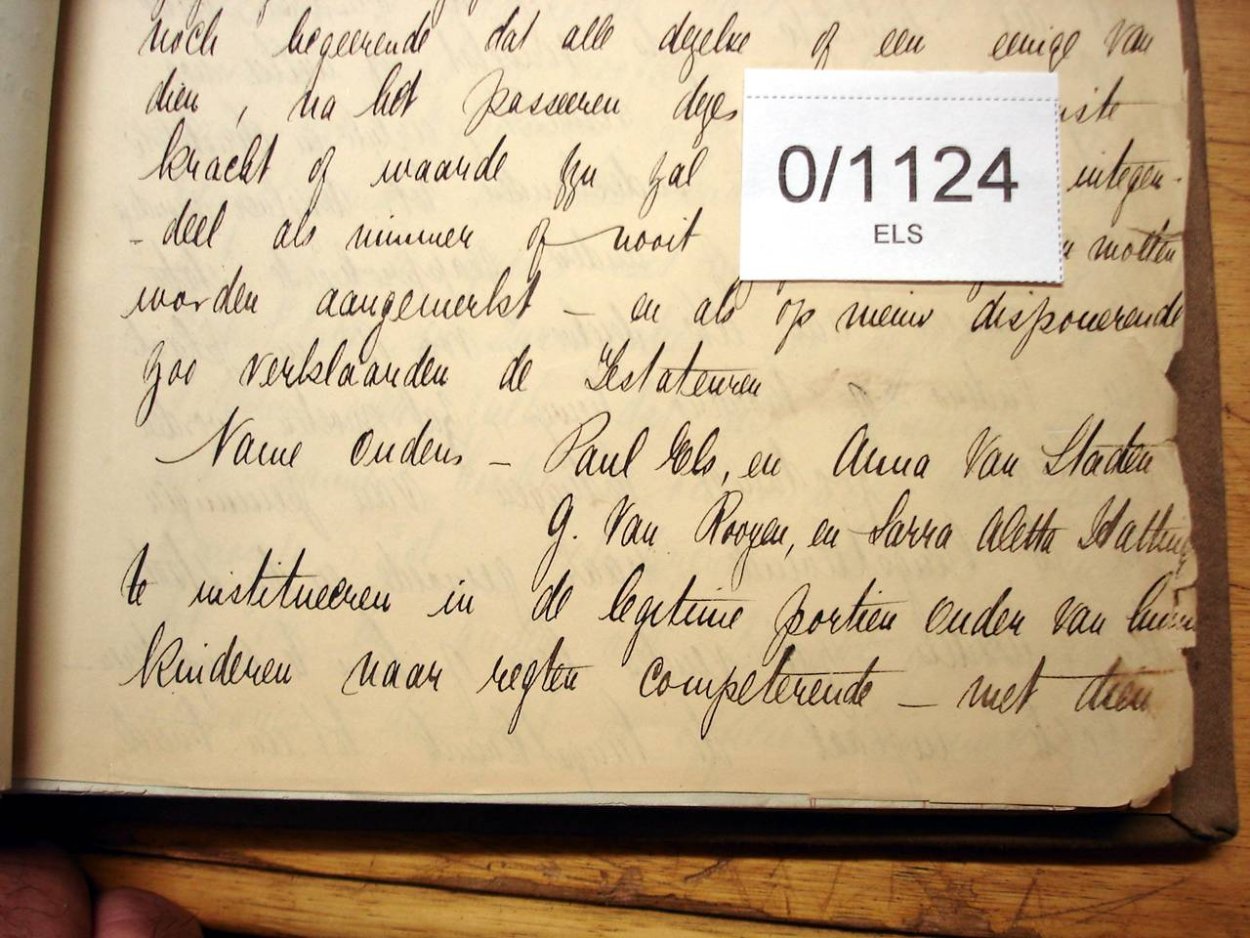 noch begeerende dat alle dezelve of een eenige van
dien, na het passeeren dezes
kracht of waarde zyn zal integen-
-deel als nimmer of nooit motten
worden aangemerkt - en als op nieuw disponerende
zoo verklaarden de Testateuren
Name ouders - Paul Els, en Anna Van Staden
G. Van Rooyen, en Sarra Aletta
te institueeren in de legitime portien onder van
kinderen naar regten competerende - met dien
0/1124
ELS